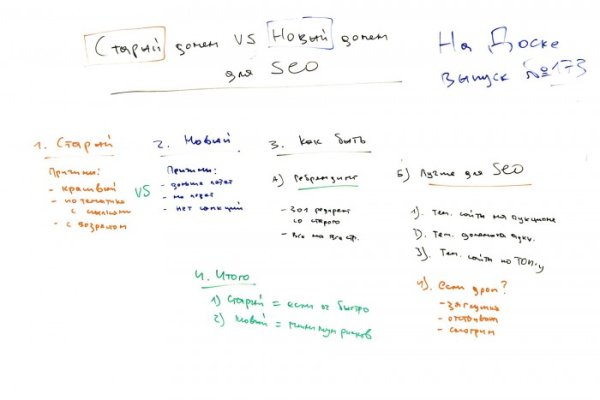 Старый домен VS Новый домен
для SEO
На Доске
выпуск №173
1. Старый
Причины:
- красивый
- по тематике
с ссылками
- с возрастом
VS
2. Новый
Причины:
- дольше
- нет санкций
3. Как быть
А) Ребрендинг
- 301 редирект
со старого
- все на все стр.
Б) Лучше для SEO
1). Тем. сайты на аукционе
2). Тем. домена аукц.
3). Тем. сайты по ТОП-у
4). если дроп?
- заглушка
- отстоять
- смотрим
4. Итого
1) Старый = если оч быстро
2) Новый = минимум рисков